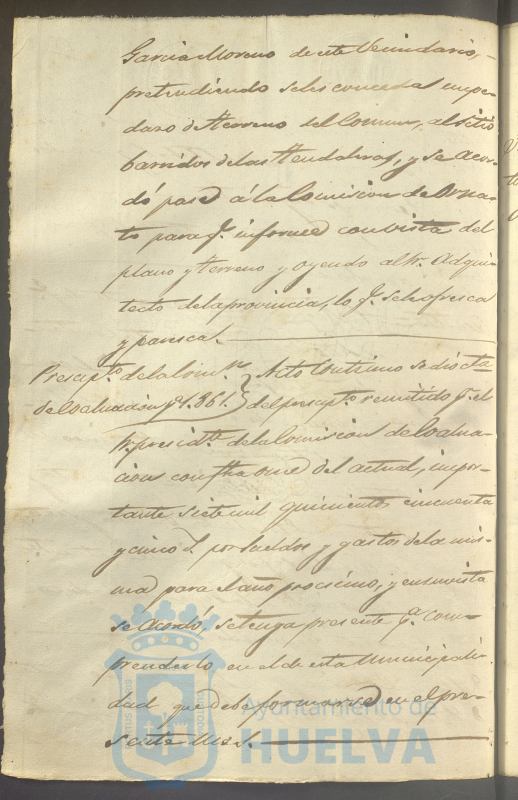 Garcia Moreno de este Vecindario,
pretendiendo seles conceda un pe-
dazo de Terreno del Comun, al sitio
barridos de las Tendaleras, y se acor-
dó pase á la Comision de Orna-
to para q.e informe con vista del
plano y Terreno y oyendo al Sr. Adqui-
tecto de la provincia, lo q.e se le ofresca
y paresca.
Presup.to de la Com.on Acto Continuo se dió cta
de Evaluacion p.a 1.861. del presup.to remitido p.r el
Sr. presid.te de la Comision de Evalua-
cion con fha once del actual, impor-
tante siete mil quinientos cincuenta
y cinco r.s por sueldos y gastos de la mis-
ma para el año procsimo, y en su vista
se Acordó, se tenga presente p.a com-
prenderlo en el de esta Municipali-
dad que debe formarse en el pre-
sente Mes.
Ayuntamiento de
HUELVA